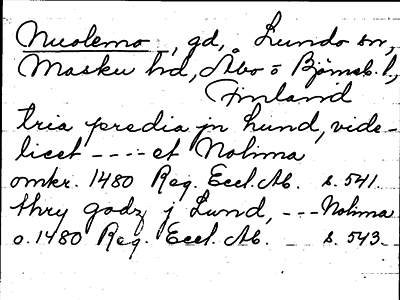 Nuolemo, gd, Lundo sn,
Masku hd, Åbo o Björneb. l,
Finland
tria predia jn lund, vide-
licet ---- et Nolima
omkr. 1480 Reg. Eccl. Ab. s. 541.
thry godz j Lund, --- Nolima
o. 1480 Reg. Eccl. Ab. s. 543.